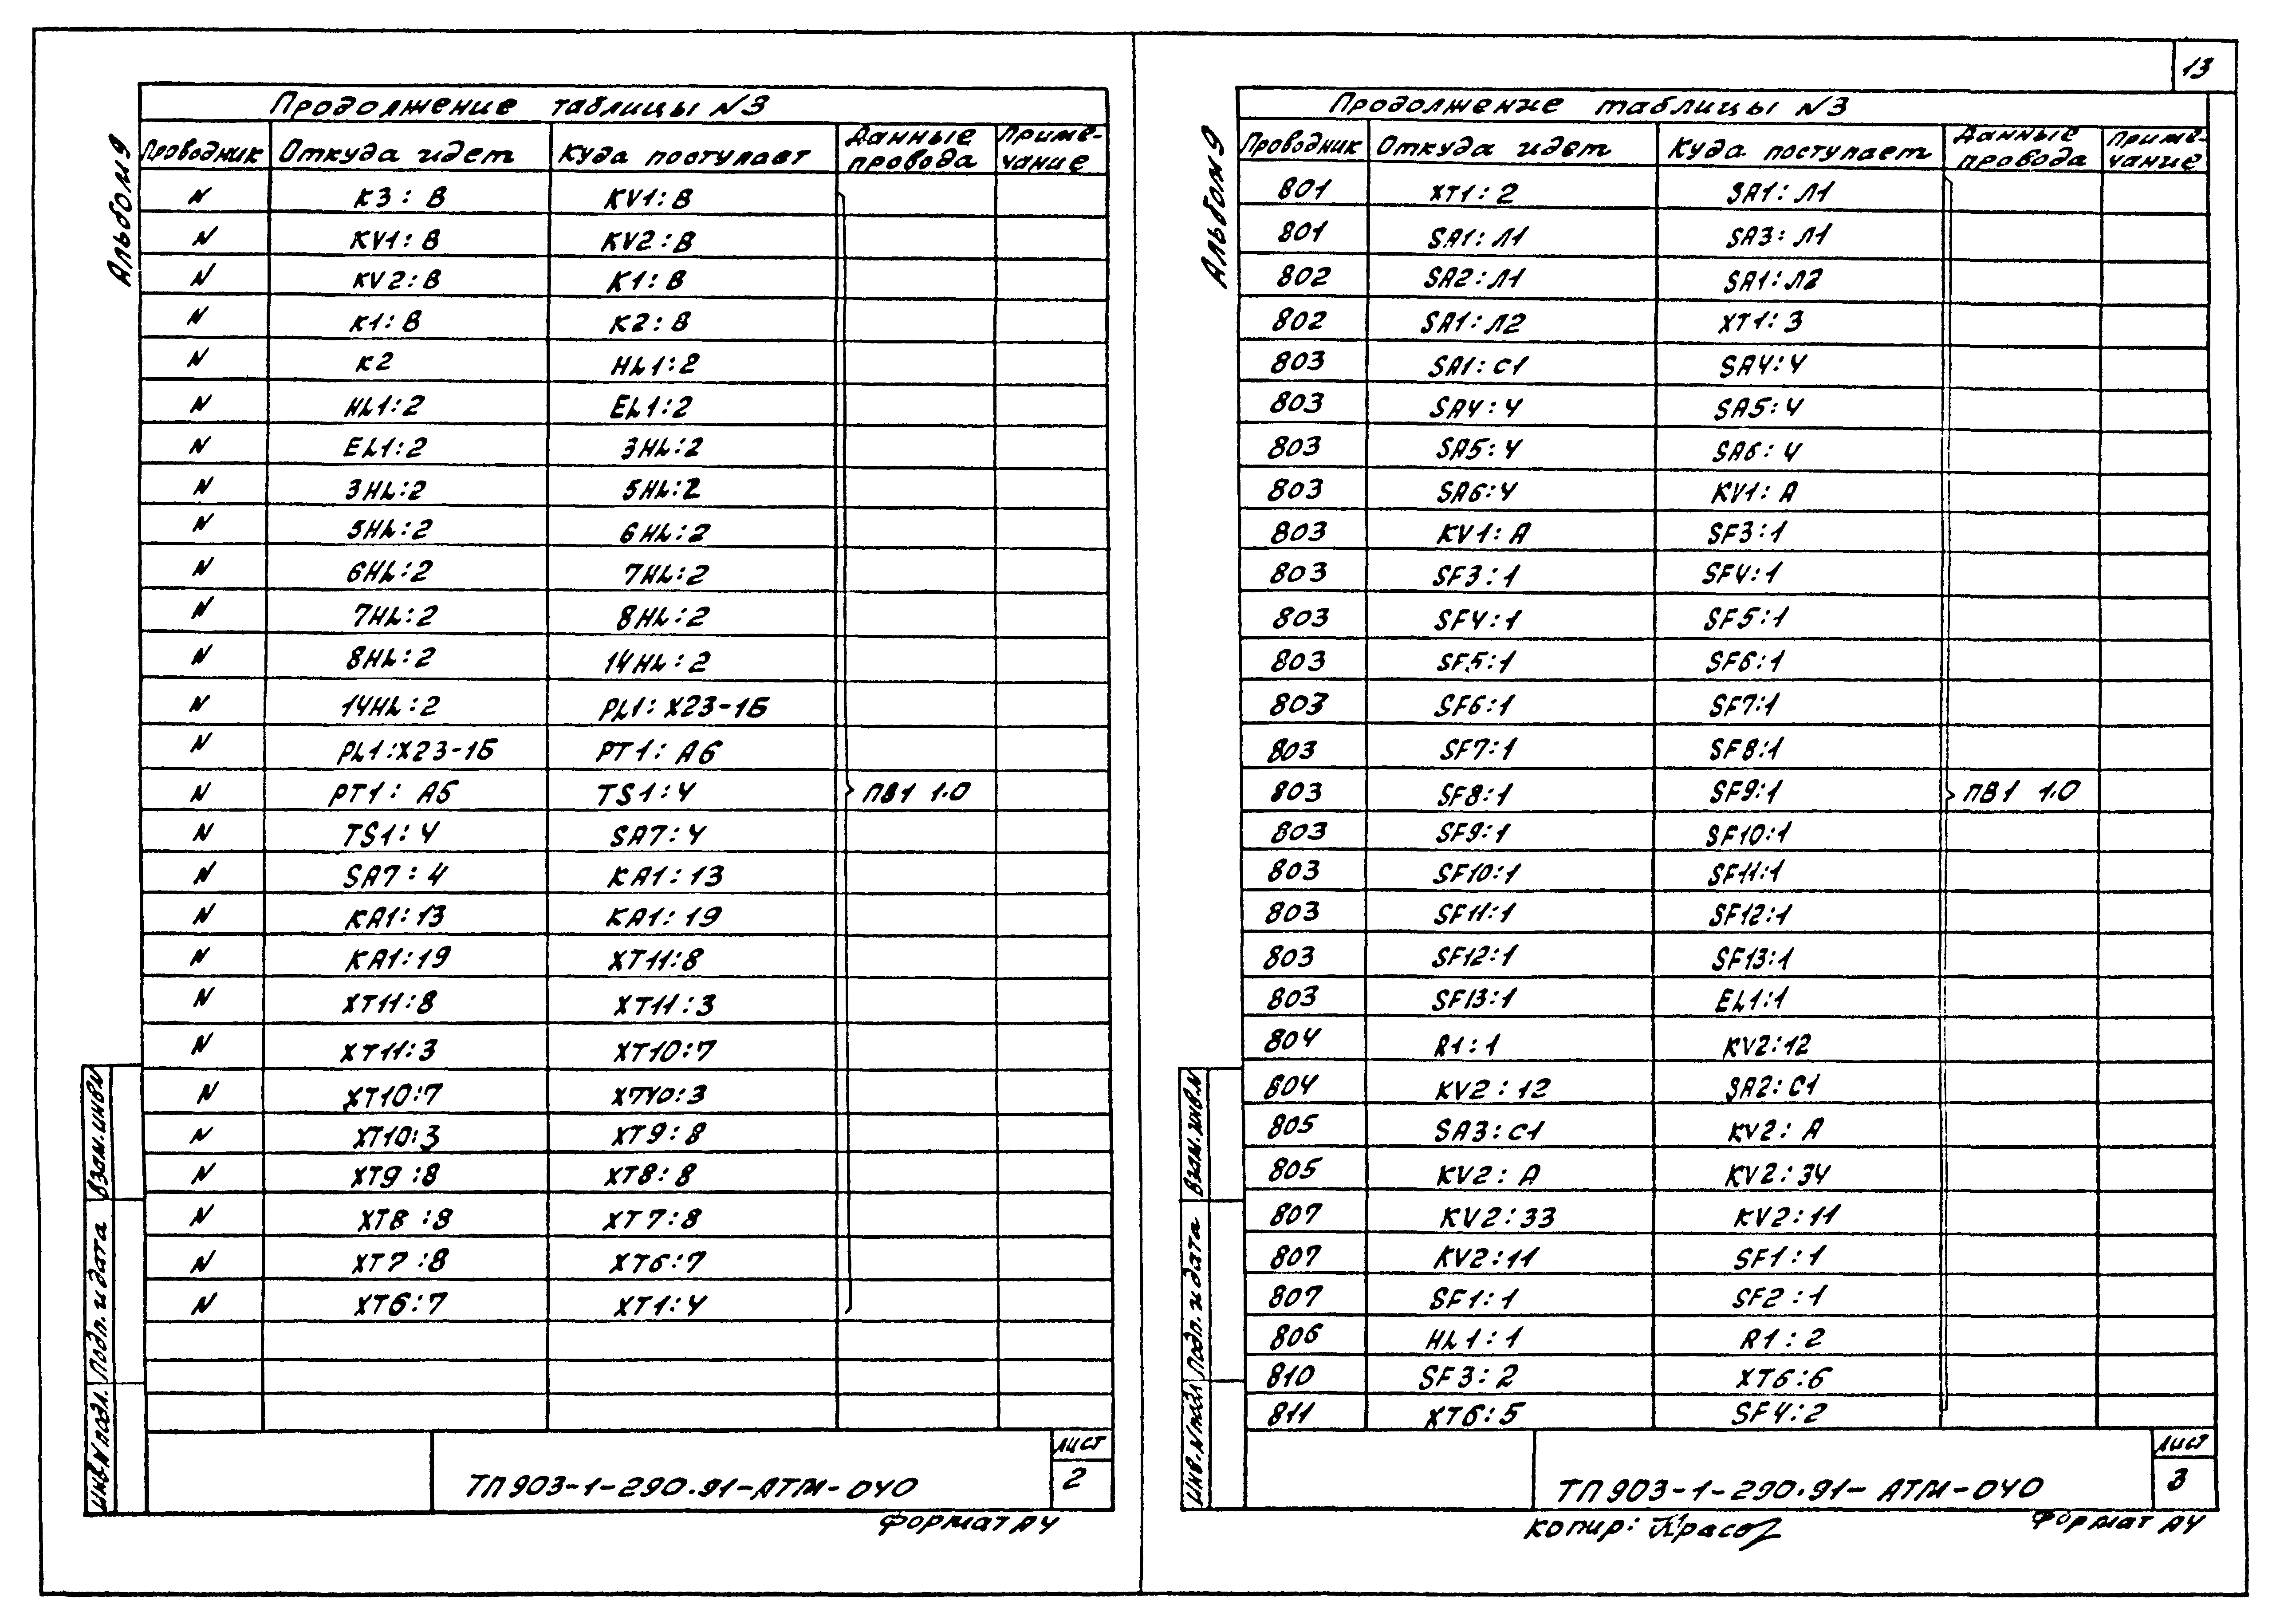 13
Альбом 9
Продолжение таблицы N3
Проводник Откуда идет Куда поступает Данные провода Приме-чание
N К3: В KV1: В
N KV1: В KV2: В
N KV2: В К1: В
N К1: В К2: В
N К2 HL1:2
N HL1:2 EL1:2
N EL1:2 3HL:2
N 3HL:2 5HL:2
N 5HL:2 6HL:2
N 6HL:2 7HL:2
N 7HL:2 8HL:2
N 8HL:2 14HL:2
N 14HL:2 PL1: X23-1Б
N PL1:X23-1Б PT1: А6
N PT1: А6 TS1:4 ПВ1 1.0
N TS1:4 SA7:4
N SA7:4 KA1:13
N KA1:13 KA1:19
N KA1:19 XT11:8
N XT11:8 XT11:3
N XT11:3 XT10:7
N XT10:7 XT10:3
N XT10:3 XT9:8
N XT9:8 XT8:8
N XT8:8 XT7:8
N XT7:8 XT6:7
N XT6:7 XT1:4
Взам.инв.N
Подп. и дата
Инв.N подл.
ТП903-1-290.91-АТМ-040
Лист
2
Формат А4
Альбом 9
Продолжение таблицы N3
Проводник Откуда идет Куда поступает Данные провода Приме-чание
801 XT1:2 SA1:Л1
801 SA1:Л1 SA3:Л1
802 SA2:Л1 SA1:Л2
802 SA1:Л2 XT1:3
803 SA1:С1 SA4:4
803 SA4:4 SA5:4
803 SA5:4 SA6:4
803 SA6:4 KV1: А
803 KV1: А SF3:1
803 SF3:1 SF4:1
803 SF4:1 SF5:1
803 SF5:1 SF6:1
803 SF6:1 SF7:1
803 SF7:1 SF8:1
803 SF8:1 SF9:1 ПВ1 1.0
803 SF9:1 SF10:1
803 SF10:1 SF11:1
803 SF11:1 SF12:1
803 SF12:1 SF13:1
803 SF13:1 EL1:1
804 R1:1 KV2:12
804 KV2:12 SA2:С1
805 SA3:С1 KV2: А
805 KV2: А KV2:34
807 KV2:33 KV2:11
807 KV2:11 SF1:1
807 SF1:1 SF2:1
806 HL1:1 R1:2
810 SF3:2 XT6:6
811 XT6:5 SF4:2
Взам.инв.N
Подп. и дата
Инв.N подл
ТП903-1-290.91-АТМ-040
Лист
3
Копир:
Формат А4